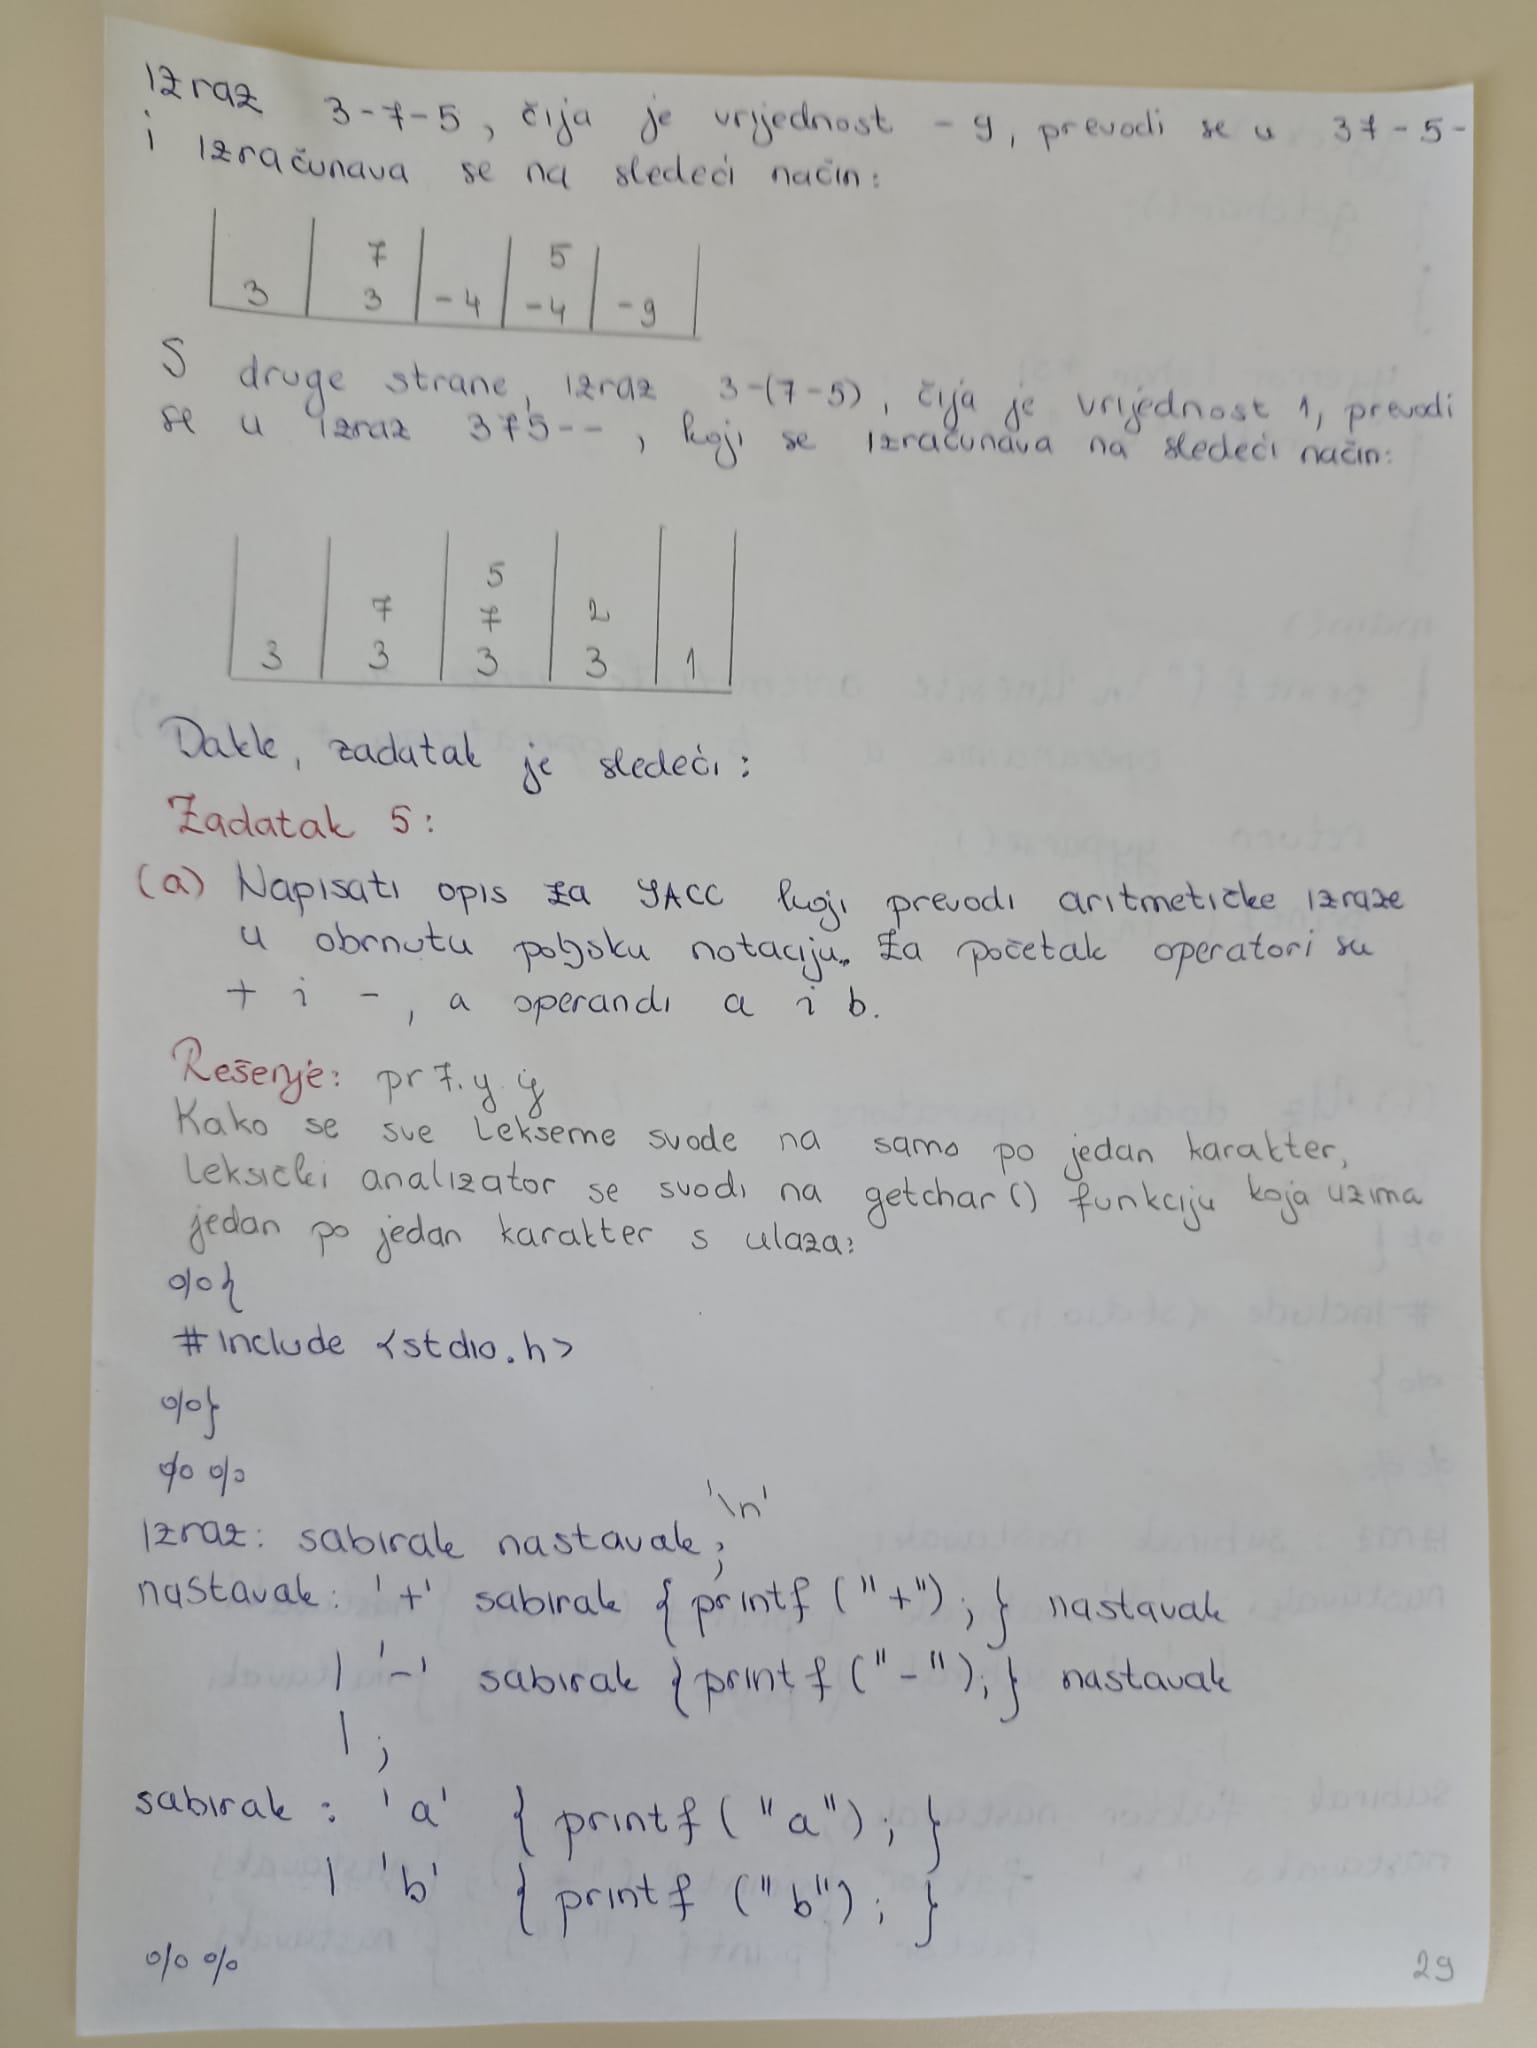 Izraz 3-7-5, čija je vrijednost -9, prevodi se u 37-5-
i izračunava se na sledeći način:
7 5
3 3 -4 -4 -9
S druge strane, izraz 3-(7-5), čija je vrijednost 1, prevodi
se u izraz 375--, koji se izračunava na sledeći način:
5
7 7 2
3 3 3 3 1
Dakle, zadatak je sledeći:
Zadatak 5:
(a) Napisati opis za YACC koji prevodi aritmetičke izraze
u obrnutu poljsku notaciju. Za početak operatori su
+ i -, a operandi a i b.
Rešenje: pr7.y
Kako se sve lekseme svode na samo po jedan karakter,
leksički analizator se svodi na getchar() funkciju koja uzima
jedan po jedan karakter s ulaza:
%{
#include <stdio.h>
%}
%%
'\n'
izraz: sabirak nastavak;
nastavak: '+' sabirak {printf("+");} nastavak
| '-' sabirak {printf("-");} nastavak
| ;
sabirak: 'a' {printf("a");}
| 'b' {printf("b");}
%%
29